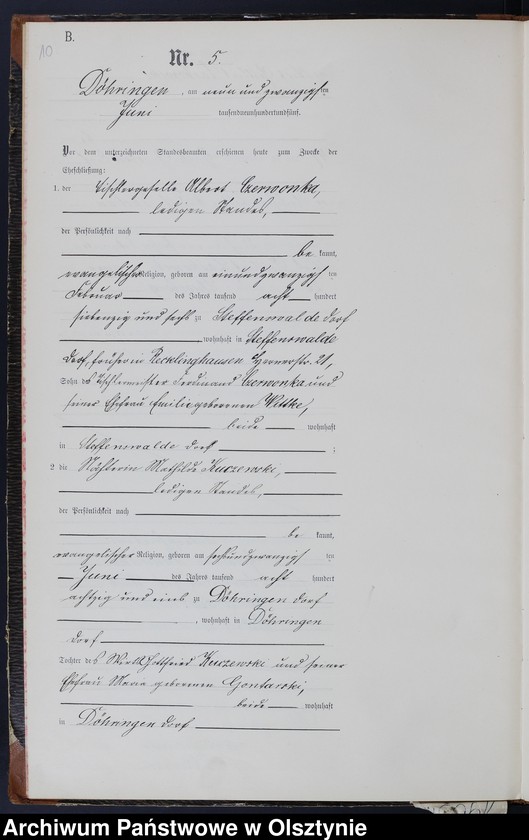 B.
10
Nr. 5.
Döhringen, am neun und zwanzigsten
Juni tausendneunhundertundfünf.
Vor dem unterzeichneten Standesbeamten erschienen heute zum Zwecke der
Eheschließung:
1. der Tischlergeselle Albert Czerwonka,
ledigen Standes,
der Persönlichkeit nach
be kannt,
evangelischer Religion, geboren am einundzwanzigsten
Februar des Jahres tausend acht hundert
siebenzig und sechs zu Steffenswalde Dorf
, wohnhaft in Steffenswalde
Dorf, früher in Recklinghausen Hernerstr. 21,
Sohn des Tischlermeister Ferdinand Czerwonka und
seiner Ehefrau Emilie geborenen Wittke,
beide wohnhaft
in Steffenswalde Dorf ;
2. die Nähterin Mathilde Kuczewski,
ledigen Standes,
der Persönlichkeit nach
be kannt,
evangelischer Religion, geboren am sechsundzwanzigsten
Juni des Jahres tausend acht hundert
achtzig und eins zu Döhringen Dorf
, wohnhaft in Döhringen
Dorf
Tochter des Wirth Gottfried Kuczewski und seiner
Ehefrau Maria geborenen Gontarski,
beide wohnhaft
in Döhringen Dorf
Archiwum Państwowe w Olsztynie